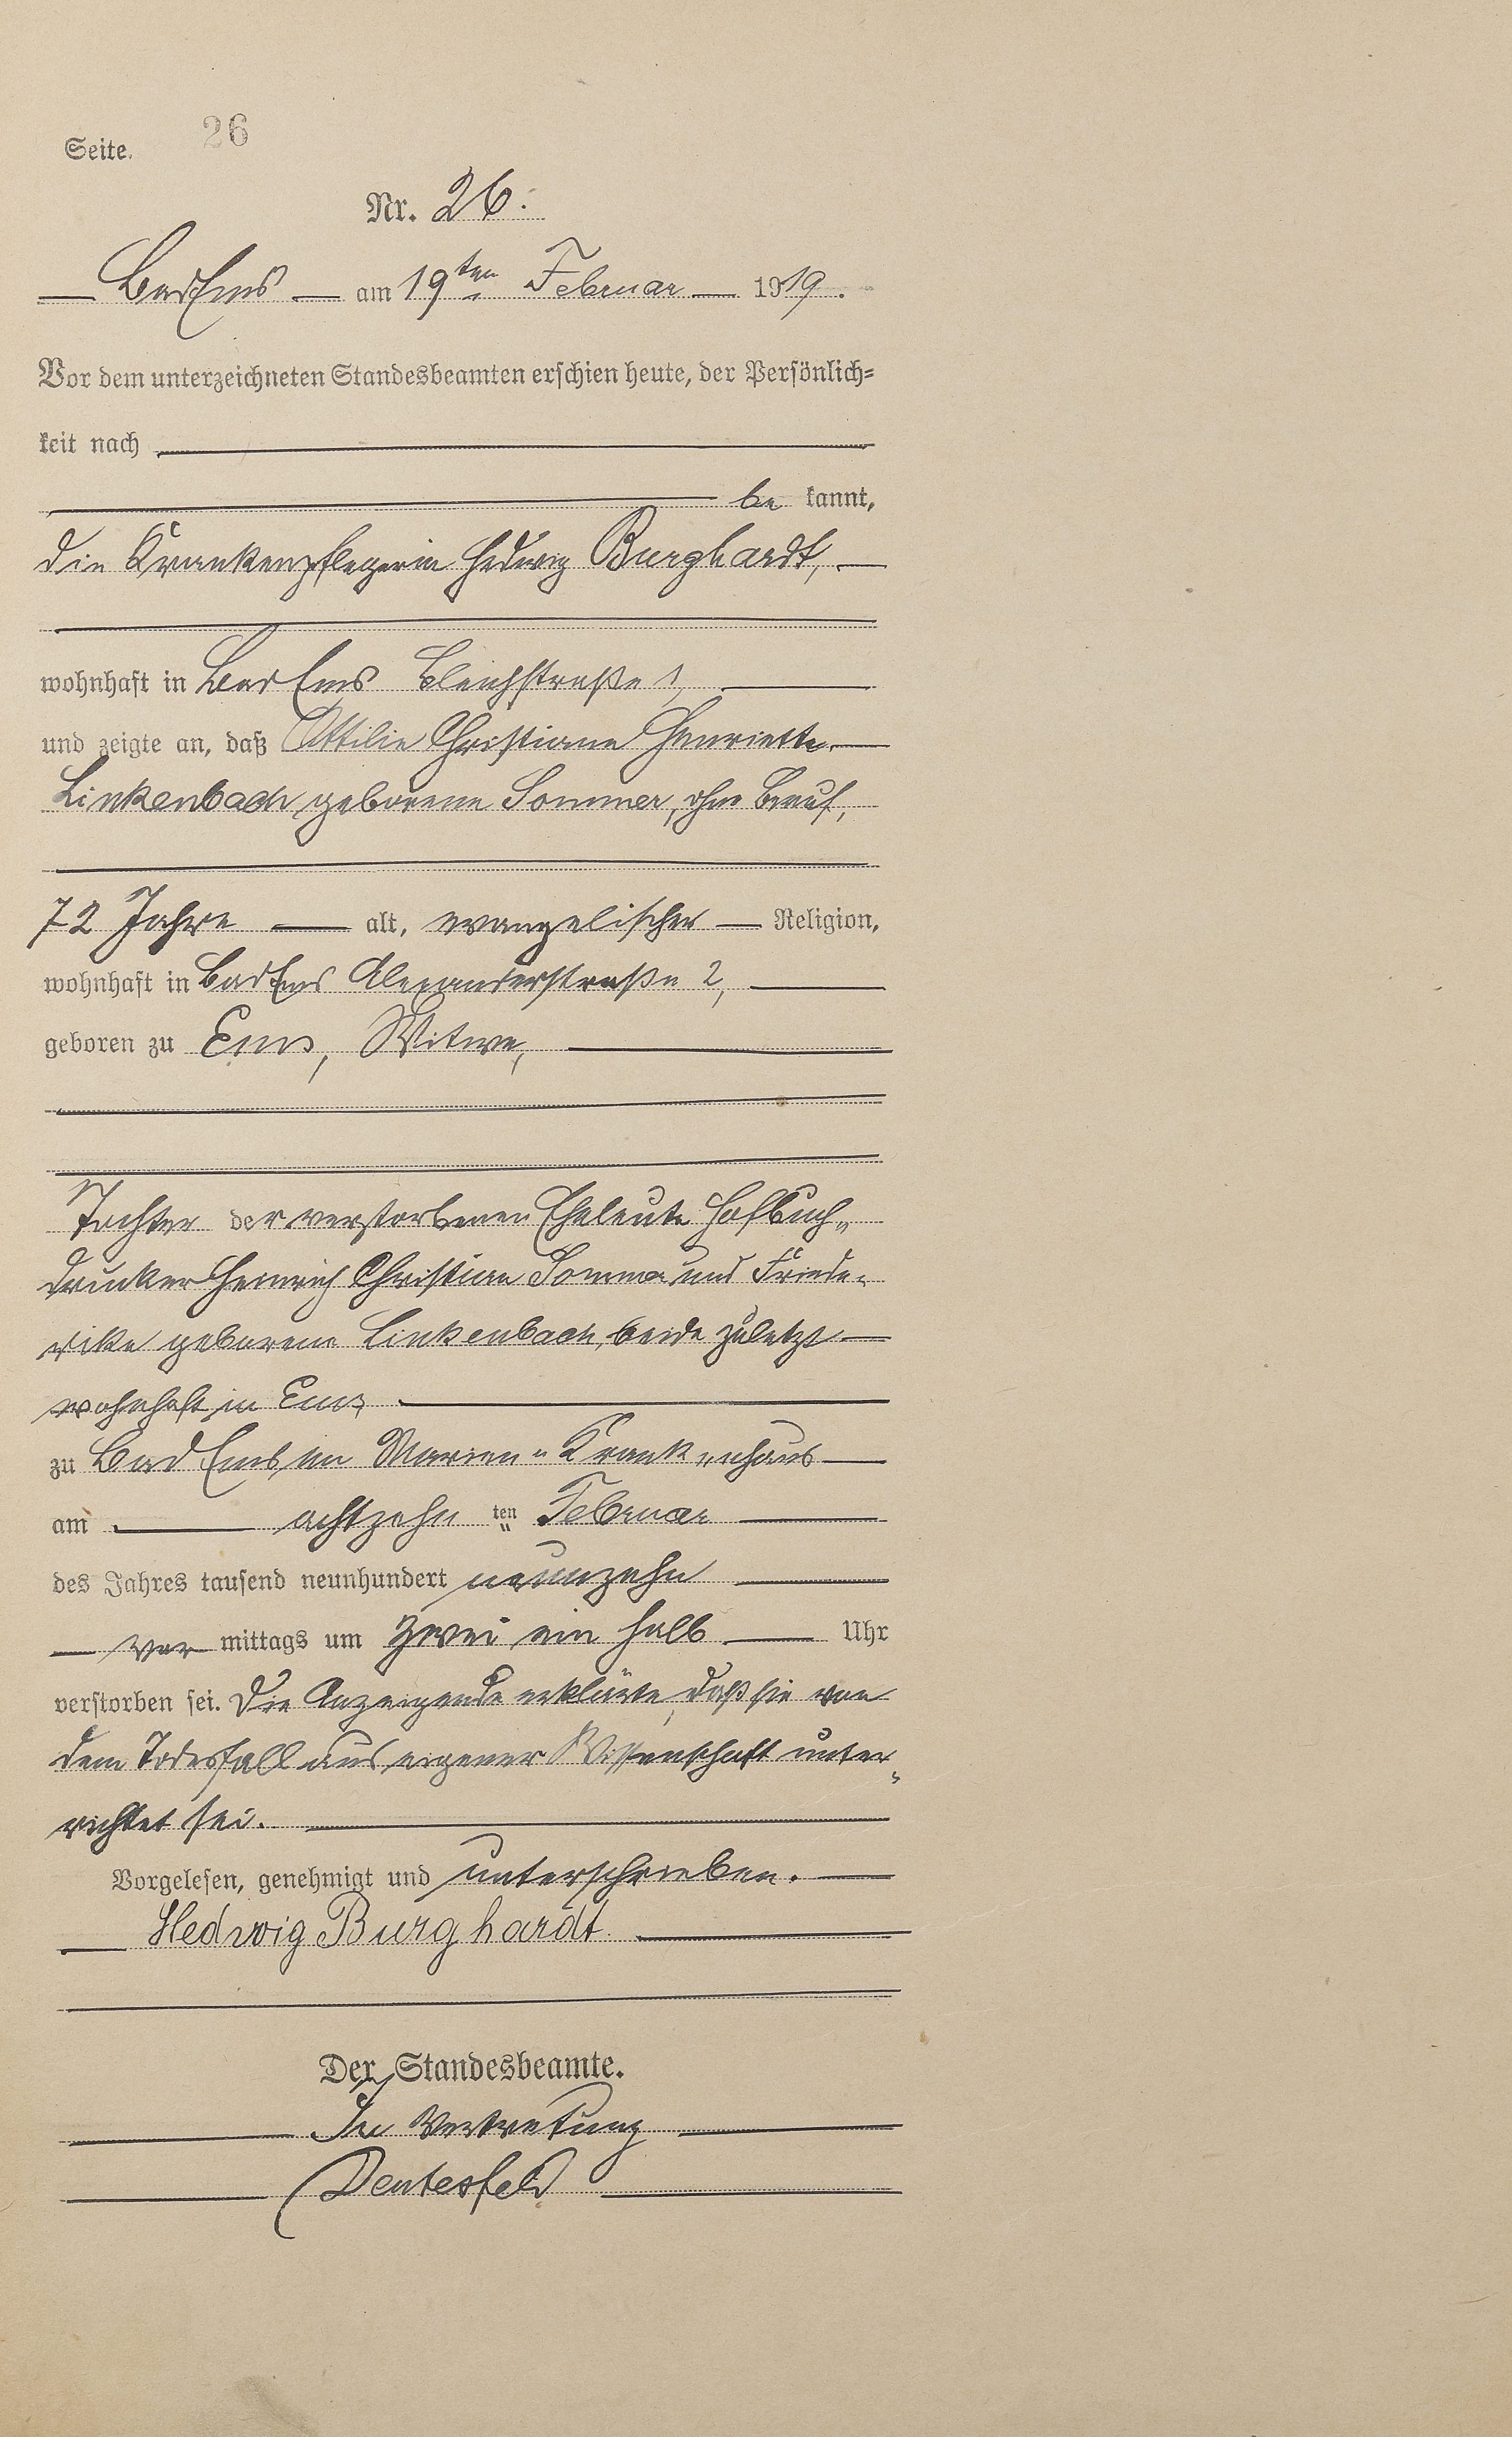 Seite. 26
Nr. 26.
Bad Ems am 19ten Februar 1919.
Vor dem unterzeichneten Standesbeamten erschien heute, der Persönlich-
keit nach
be kannt,
die Krankenpflegerin Hedwig Burghardt,
wohnhaft in Bad Ems Bleichstraße 1,
und zeigte an, daß Ottilie Christiane Henriette
Linkenbach geborene Sommer, ohne Beruf,
72 Jahre alt, evangelischer Religion,
wohnhaft in Bad Ems Alexanderstraße 2,
geboren zu Ems, Witwe,
Tochter der verstorbenen Eheleute Hofbuch-
drucker Heinrich Christian Sommer und Friede-
rike geborene Linkenbach, beide zuletzt
wohnhaft in Ems,
zu Bad Ems, im Marien-Krankenhaus
am achtzehn ten Februar
des Jahres tausend neunhundert neunzehn
vor mittags um zwei ein halb Uhr
verstorben sei. Die Anzeigende erklärte, daß sie von
dem Todesfall aus eigener Wissenschaft unter-
richtet sei.
Vorgelesen, genehmigt und unterschrieben.
Hedwig Burghardt.
Der Standesbeamte.
In Vertretung